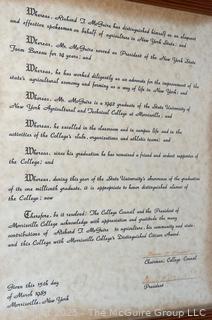 Whereas, Richard T. McGuire has distinguished himself as an eloquent
and effective spokesman on behalf of agriculture in New York State; and
Whereas, Mr. McGuire served as President of the New York State
Farm Bureau for 14 years; and
Whereas, he has worked diligently as an advocate for the improvement of the
state's agricultural economy and farming as a way of life in New York; and
Whereas, Mr. McGuire is a 1942 graduate of the State University of
New York Agricultural and Technical College at Morrisville; and
Whereas, he excelled in the classroom and in campus life and in the
activities of the College's state, organizations and athletic teams; and
Whereas, since his graduation he has remained a friend and ardent supporter of
the College; and
Whereas, during this year of the State University's observance of the graduation
of its one millionth graduate, it is appropriate to honor distinguished alumni of
the College; now
Therefore, be it resolved: The College Council and the President of
Morrisville College acknowledge with appreciation and gratitude the many
contributions of Richard T. McGuire, to agriculture, his community and state
and this College with Morrisville College's Distinguished Citizen Award
Given this 15th day
of March 1985
Morrisville, New York
Chairman, College Council
President